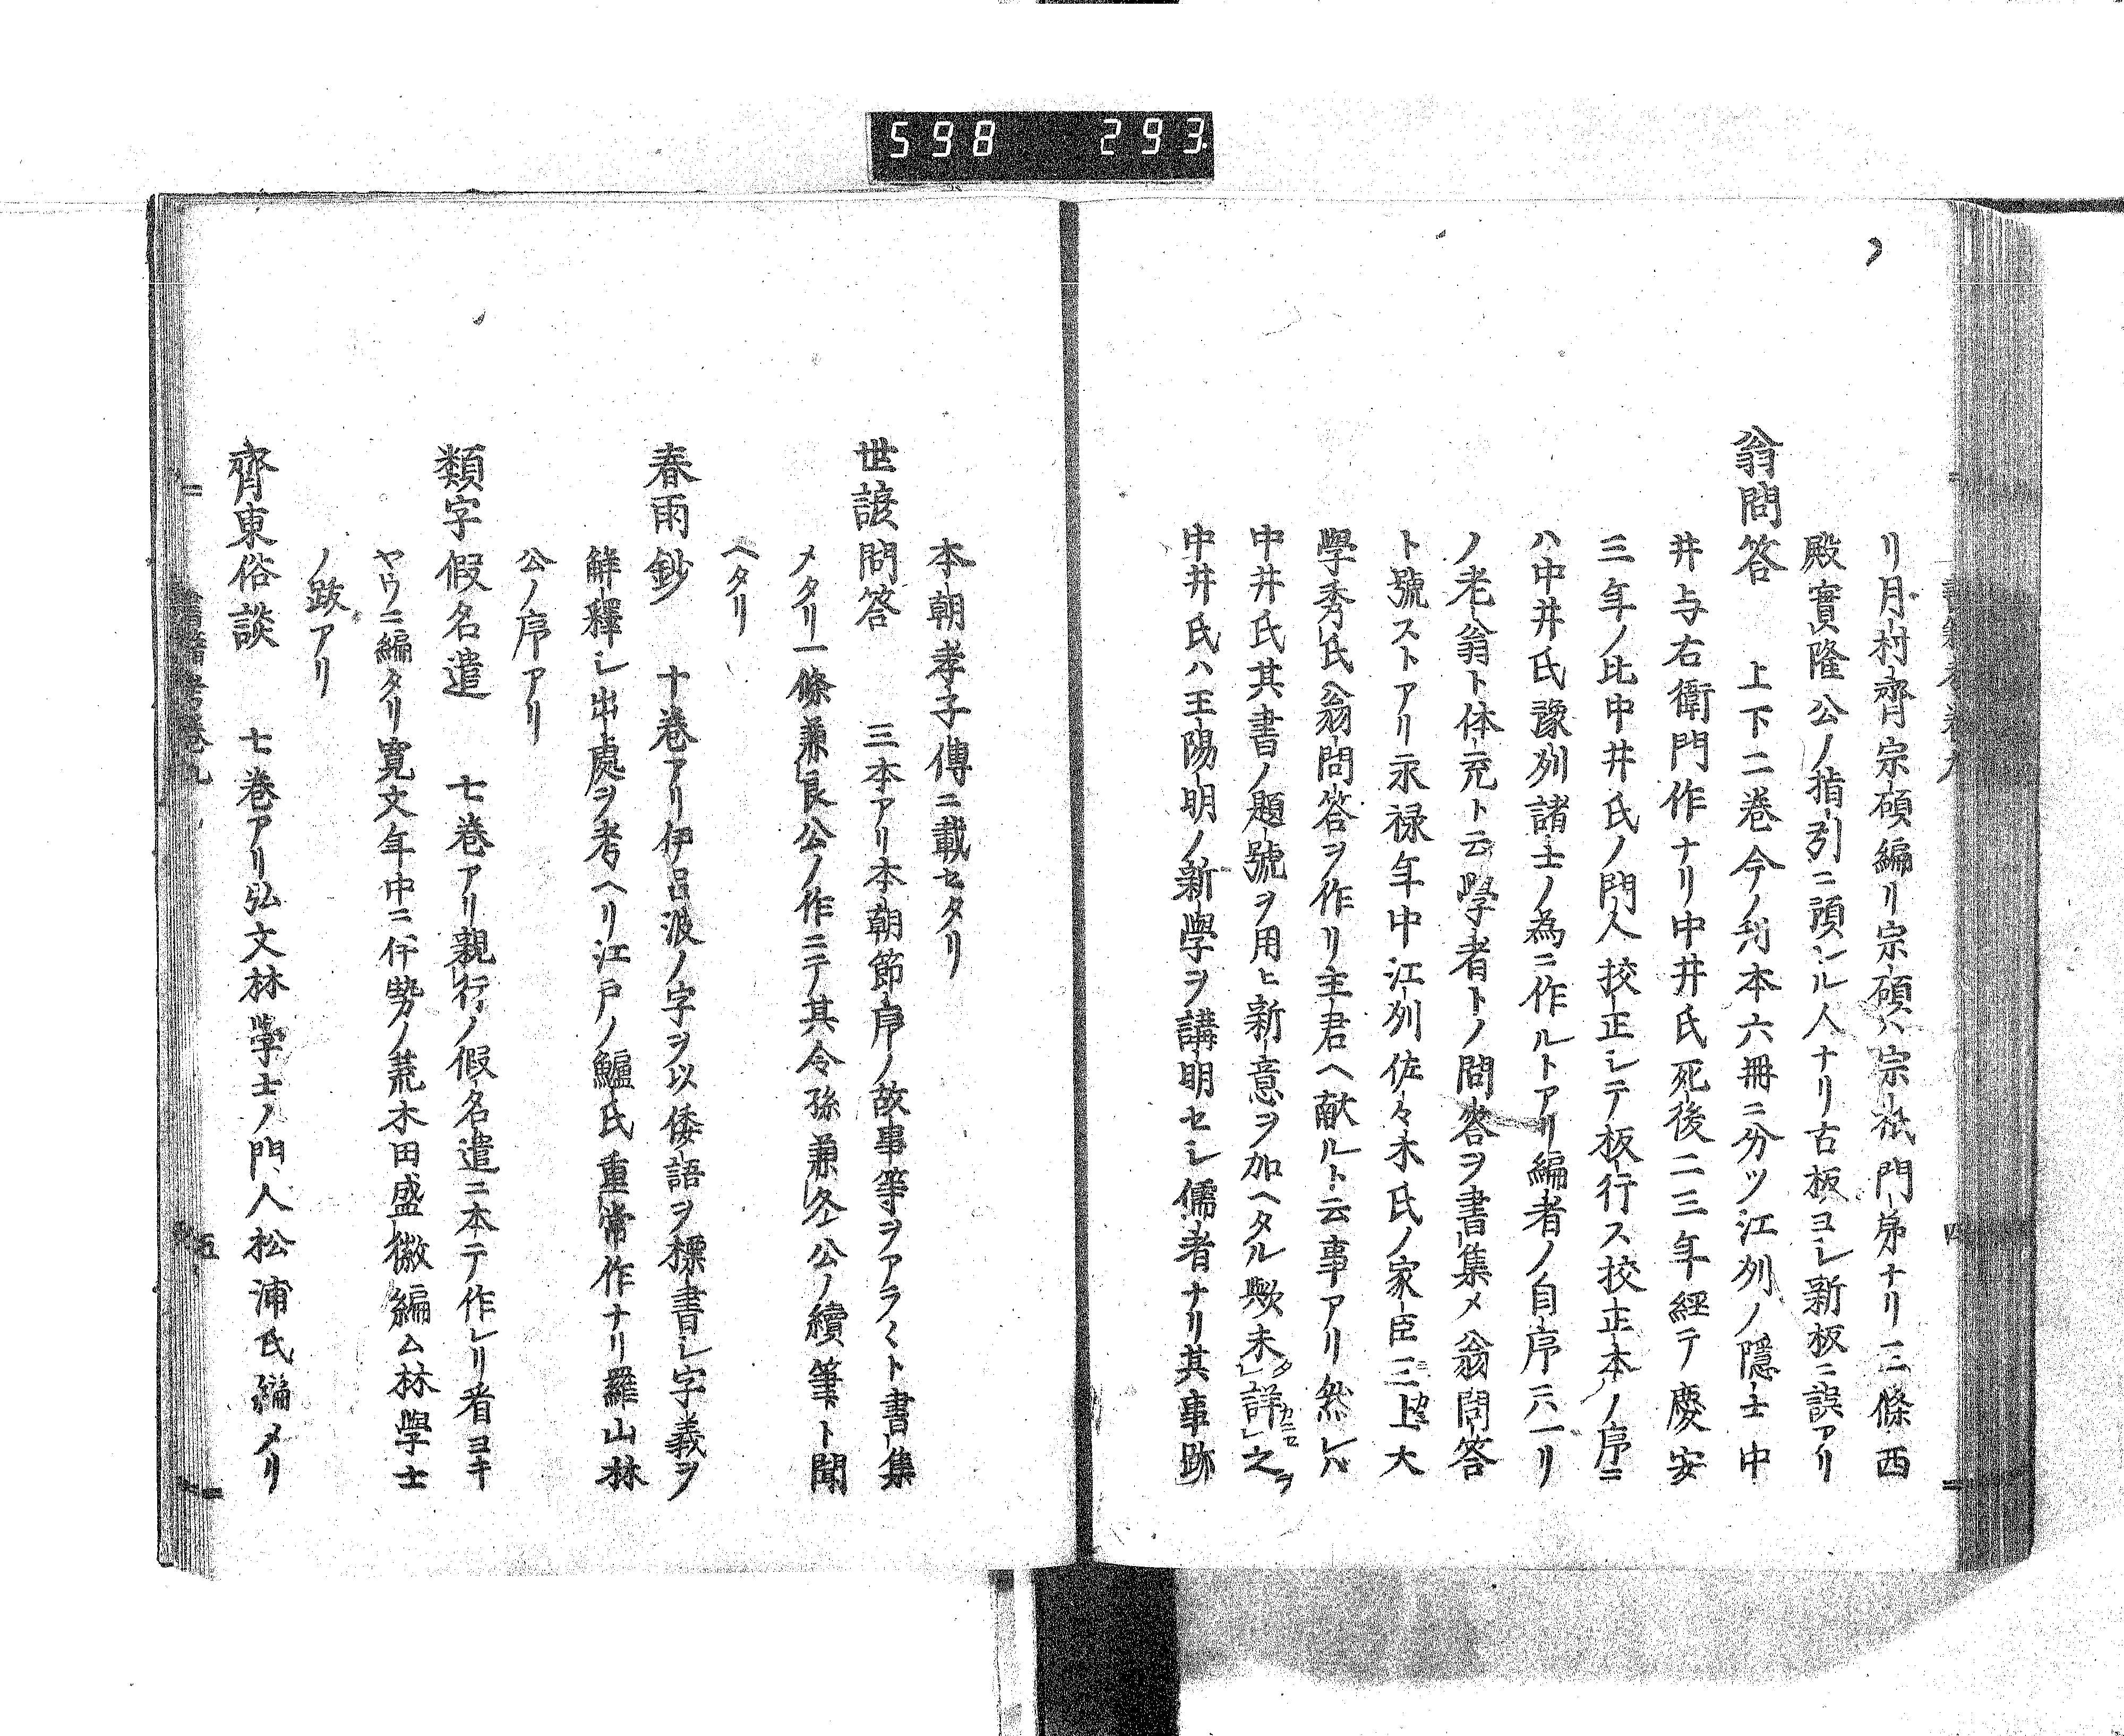 598 293
リ月村齊宗碩編リ宗碩ハ宗祇門弟ナリ三條西
殿實隆公ノ指引ニ預シル人ナリ古板ヨレ新板ニ誤アリ
翁問答 上下二巻今ノ刋本六冊ニ分ツ江刕ノ隱士中
井与右衛門作ナリ中井氏死後二三年經テ慶安
三年ノ比中井氏ノ門人挍正シテ板行ス挍正本ノ序ニ
ハ中井氏豫刕諸士ノ為ニ作ルトアリ編者ノ自序ニハ一リ
ノ老翁ト体充ト云學者トノ問答ヲ書集メ翁問答
ト號ストアリ永禄年中江刕佐々木氏ノ家臣三上大
學秀氏翁問答ヲ作リ主君ヘ献ルト云事アリ然レハ
中井氏其書ノ題號ヲ用ヒ新意ヲ加ヘタル歟未詳之
中井氏ハ王陽明ノ新學ヲ講明セシ儒者ナリ其事跡
本朝孝子傳ニ載セタリ
世諺問答 三本アリ本朝節序ノ故事等ヲアラ〱ト書集
メタリ一條兼良公ノ作ニテ其令孫兼冬公ノ續筆ト聞
ヘタリ
春雨鈔 十巻アリ伊呂波ノ字ヲ以倭語ヲ標書レ字義ヲ
觧釋シ出處ヲ考ヘリ江戸ノ鱸氏重常作ナリ羅山林
公ノ序アリ
類字假名遣 七巻アリ親行ノ假名遣ニ本テ作レリ者ヨキ
ヤウニ編タリ寛文年中ニ伊勢ノ荒木田盛徴編ム林學士
ノ跋アリ
齊東俗談 七巻アリ弘文林学士ノ門人松浦氏編メリ
五